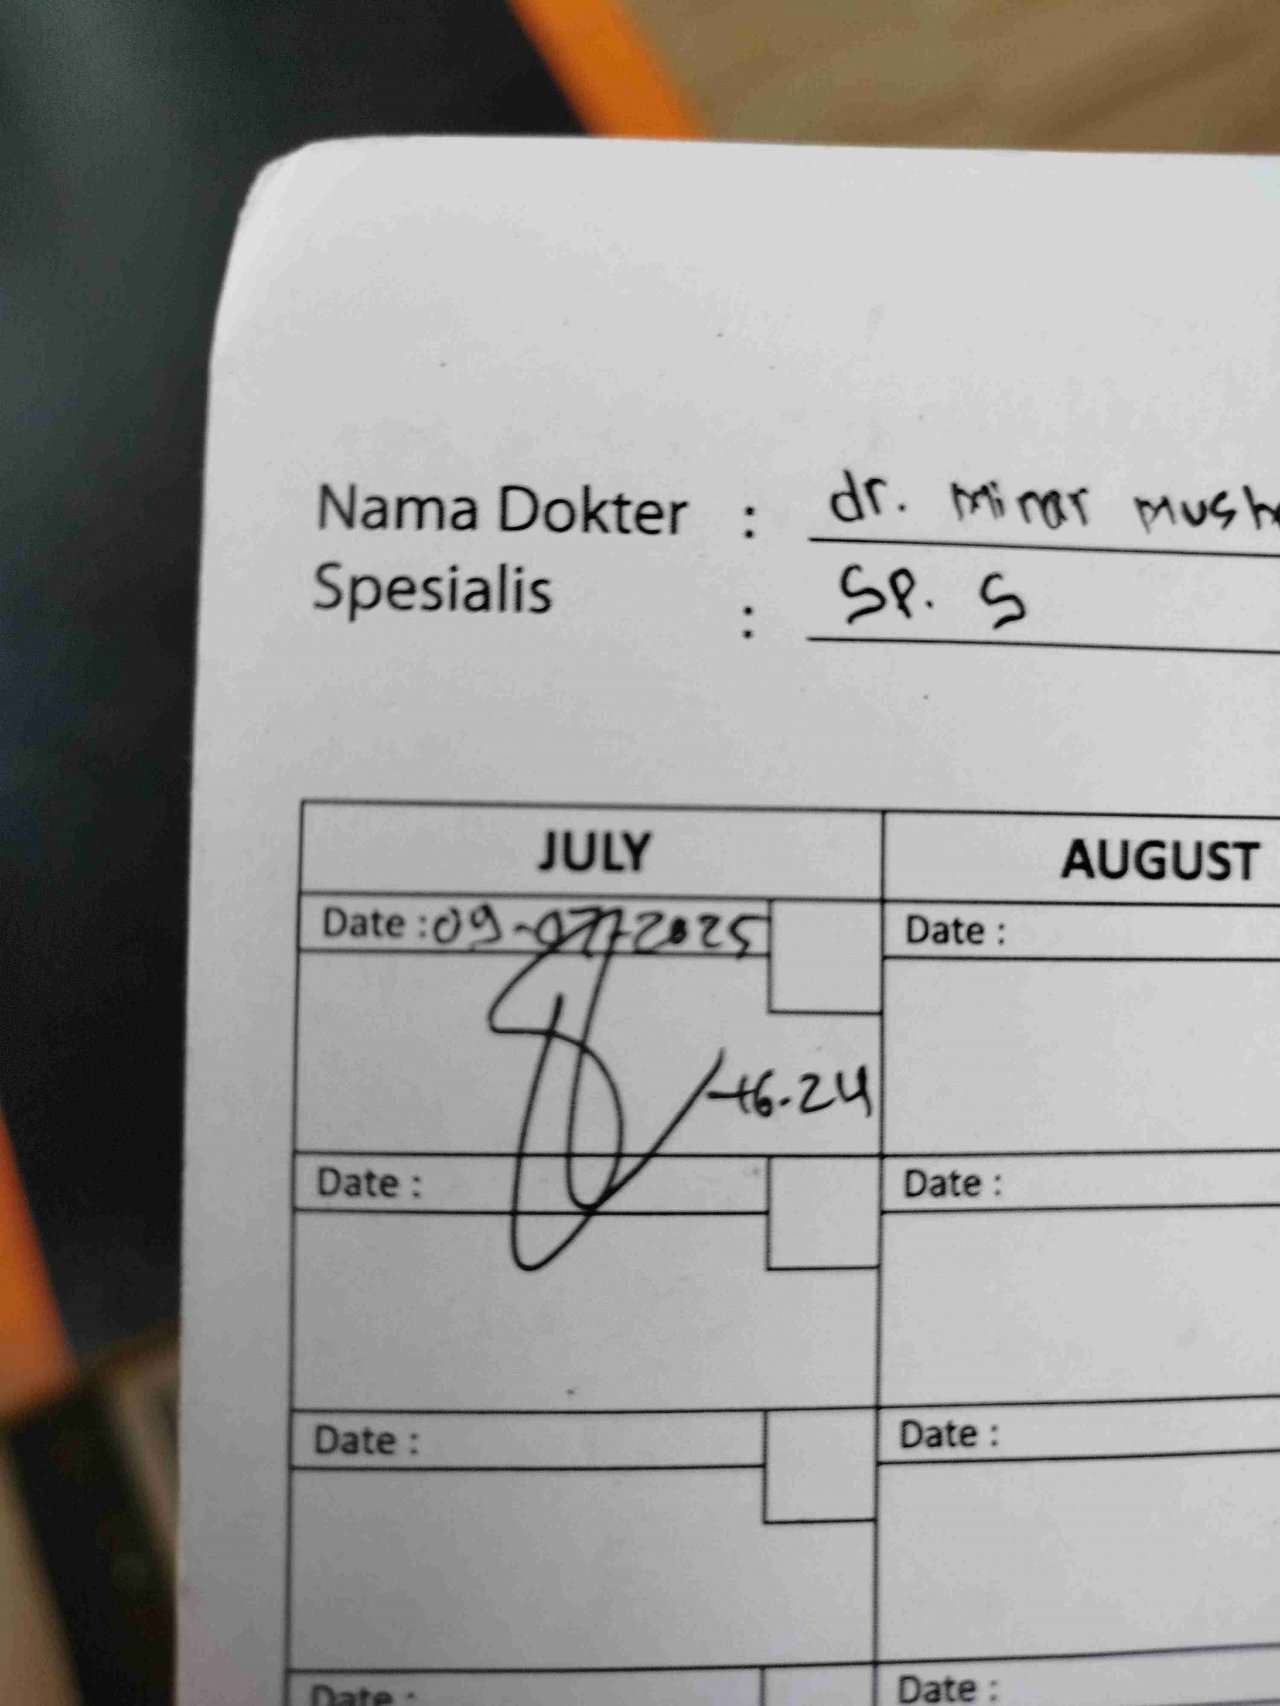 Nama Dokter : dr. Minar Mush
Spesialis : SP. S
JULY AUGUST
Date : 09-07-2025 Date :
16.24
Date : Date :
Date : Date :
Date : Date :